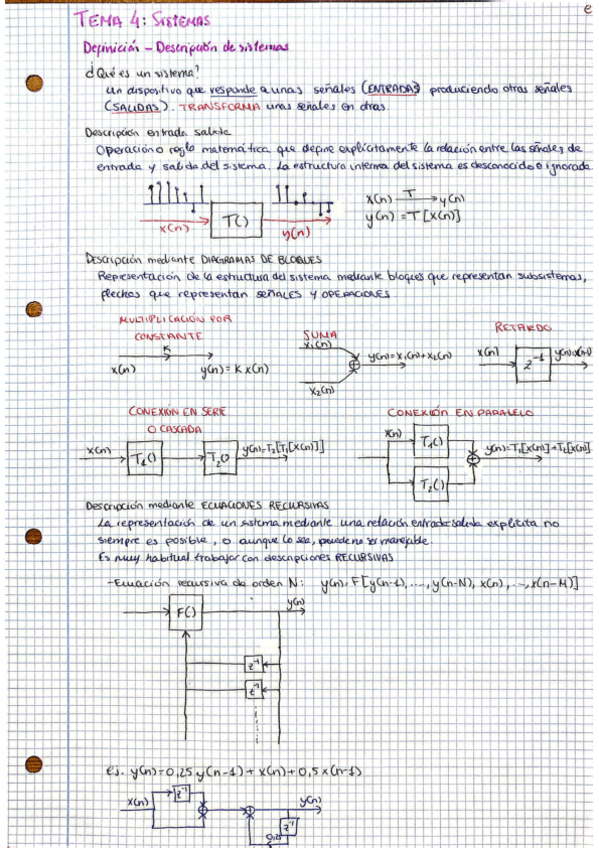 e
TEMA 4: SISTEMAS
Definición - Descripción de sistemas
¿Qué es un sistema?
un dispositivo que responde a unas señales (ENTRADAS) produciendo otras señales
(SALIDAS). TRANSFORMA unas señales en otras.
Descripción entrada salida
Operación o regla matemática que define explícitamente la relación entre las señales de
entrada y salida del sistema. La estructura interna del sistema es desconocida o ignorada.
x(n) T() y(n)
x(n) T y(n)
y(n) = T[x(n)]
Descripción mediante DIAGRAMAS DE BLOQUES
Representación de la estructura del sistema mediante bloques que representan subsistemas,
flechas que representan SEÑALES Y OPERACIONES.
MULTIPLICACIÓN POR
CONSTANTE
K
x(n) y(n) = K x(n)
SUMA
x1(n)
y(n) = x1(n)+x2(n)
x2(n)
RETARDO
x(n) z-1 y(n)=x(n-1)
CONEXIÓN EN SERIE
O CASCADA
x(n) T1() T2() y(n)=T2[T1[x(n)]]
CONEXIÓN EN PARALELO
x(n) T1() y(n)=T1[x(n)]+T2[x(n)]
T2()
Descripción mediante ECUACIONES RECURSIVAS
La representación de un sistema mediante una relación entrada-salida explícita no
siempre es posible, o aunque lo sea, puede no ser manejable.
Es muy habitual trabajar con descripciones RECURSIVAS
-Ecuación recursiva de orden N: y(n)=F[y(n-1), ..., y(n-N), x(n), ..., x(n-M)]
F() y(n)
z-1
z-1
ej. y(n)=0,25 y(n-1) + x(n) + 0,5 x(n-1)
x(n) z-1 y(n)
z-1
0,25